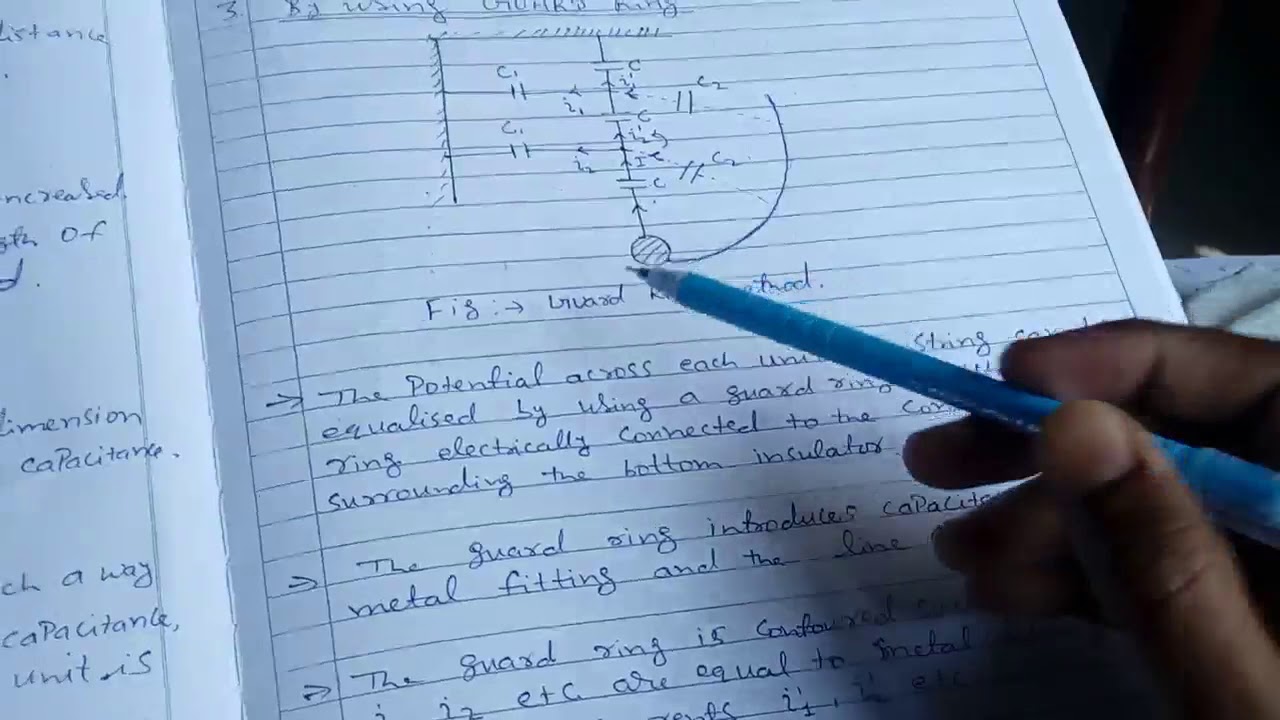 distance
ncreased
gth of
dimension
capacitance.
ch a way
capacitance,
unit is
3. By using Guard Ring
C
C1
i1
C2
i1'
C
C1
i2
i2'
C2
I
C
Fig :→ Guard method.
→ The Potential across each unit string
equalised by using a guard ring
ring electrically connected to the
surrounding the bottom insulator
⇒ The guard ring introduces
metal fitting and the line
⇒ The guard ring is contoured
i1 i2 etc are equal to metal
i1', i2' etc